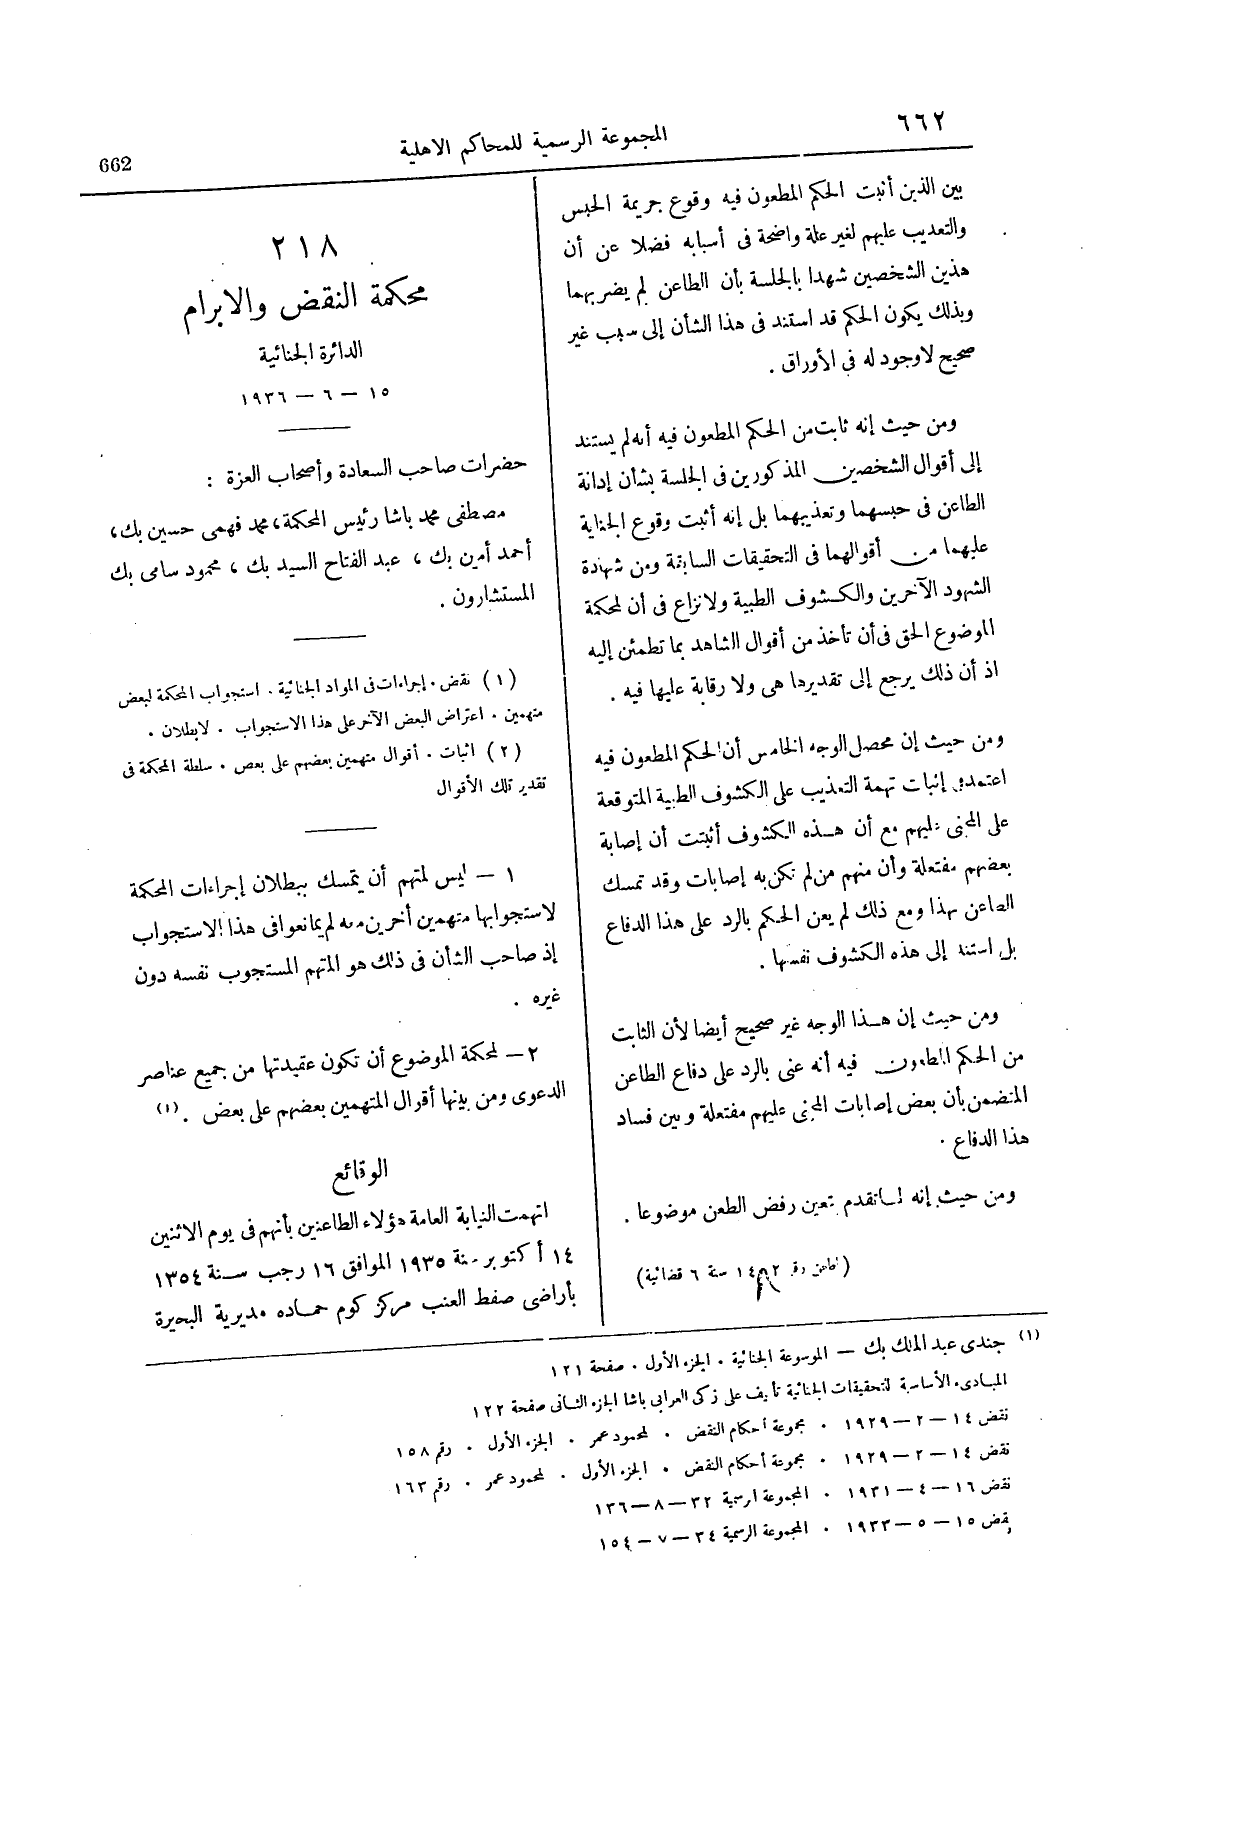 ٦٦٢
المجموعة الرسمية للمحاكم الاهلية
662
بين الذين أثبت الحكم المطعون فيه وقوع جريمة الحبس
والتعذيب عليهم لغير علة واضحة فى أسبابه فضلا عن أن
هذين الشخصين شهدا بالجلسة بأن الطاعن لم يضربهما
وبذلك يكون الحكم قد استند فى هذا الشأن إلى سبب غير
صحيح لاوجود له فى الأوراق .
ومن حيث إنه ثابت من الحكم المطعون فيه أنه لم يستند
إلى أقوال الشخصين المذكورين فى الجلسة بشأن إدانة
الطاعن فى حبسهما وتعذيبهما بل إنه أثبت وقوع الجناية
عليهما من أقوالهما فى التحقيقات السابقة ومن شهادة
الشهود الآخرين والكشوف الطبية ولانزاع فى أن لمحكمة
الموضوع الحق فى أن تأخذ من أقوال الشاهد بما تطمئن إليه
اذ أن ذلك يرجع إلى تقديرها هى ولا رقابة عليها فيه .
ومن حيث إن محصل الوجه الخامس أن الحكم المطعون فيه
اعتمد فى إثبات تهمة التعذيب على الكشوف الطبية المتوقعة
على المجنى عليهم مع أن هذه الكشوف أثبتت أن إصابة
بعضهم مفتعلة وأن منهم من لم تكن به إصابات وقد تمسك
الطاعن بهذا ومع ذلك لم يعن الحكم بالرد على هذا الدفاع
بل استند إلى هذه الكشوف نفسها .
ومن حيث إن هذا الوجه غير صحيح أيضا لأن الثابت
من الحكم المطعون فيه أنه عنى بالرد على دفاع الطاعن
المتضمن بأن بعض إصابات المجنى عليهم مفتعلة وبين فساد
هذا الدفاع .
ومن حيث إنه لما تقدم تعين رفض الطعن موضوعا .
(طعن رقم ١٤٨٢ سنة ٦ قضائية)
٢١٨
محكمة النقض والابرام
الدائرة الجنائية
١٥ — ٦ — ١٩٣٦
حضرات صاحب السعادة وأصحاب العزة :
مصطفى محمد باشا رئيس المحكمة، محمد فهمى حسين بك،
أحمد أمين بك ، عبد الفتاح السيد بك ، محمود سامى بك
المستشارون .
(١) نقض . إجراءات فى المواد الجنائية . استجواب المحكمة لبعض
متهمين . اعتراض البعض الآخر على هذا الاستجواب . لابطلان .
(٢) اثبات . أقوال متهمين بعضهم على بعض . سلطة المحكمة فى
تقدير تلك الأقوال
١ — ليس لمتهم أن يتمسك ببطلان إجراءات المحكمة
لاستجوابها متهمين أخرين معه لم يمانعوا فى هذا الاستجواب
إذ صاحب الشأن فى ذلك هو المتهم المستجوب نفسه دون
غيره .
٢ — لمحكمة الموضوع أن تكون عقيدتها من جميع عناصر
الدعوى ومن بينها أقوال المتهمين بعضهم على بعض . (١)
الوقائع
اتهمت النيابة العامة هؤلاء الطاعنين بأنهم فى يوم الاثنين
١٤ أكتوبر سنة ١٩٣٥ الموافق ١٦ رجب سنة ١٣٥٤
بأراضى صفط العنب مركز كوم حماده مديرية البحيرة
(١) جندى عبد الملك بك — الموسوعة الجنائية . الجزء الأول . صفحة ١٢١
المبادىء الأساسية للتحقيقات الجنائية تأليف على زكى العرابى باشا الجزء الثانى صفحة ١٢٢
نقض ١٤ — ٢ — ١٩٢٩ . مجموعة أحكام النقض . لمحمود عمر . الجزء الأول . رقم ١٥٨
نقض ١٤ — ٢ — ١٩٢٩ . مجموعة أحكام النقض . الجزء الأول . لمحمود عمر . رقم ١٦٣
نقض ١٦ — ٤ — ١٩٣١ . المجموعة الرسمية ٣٢ — ٨ — ١٣٦
نقض ١٥ — ٥ — ١٩٣٣ . المجموعة الرسمية ٣٤ — ٧ — ١٥٤